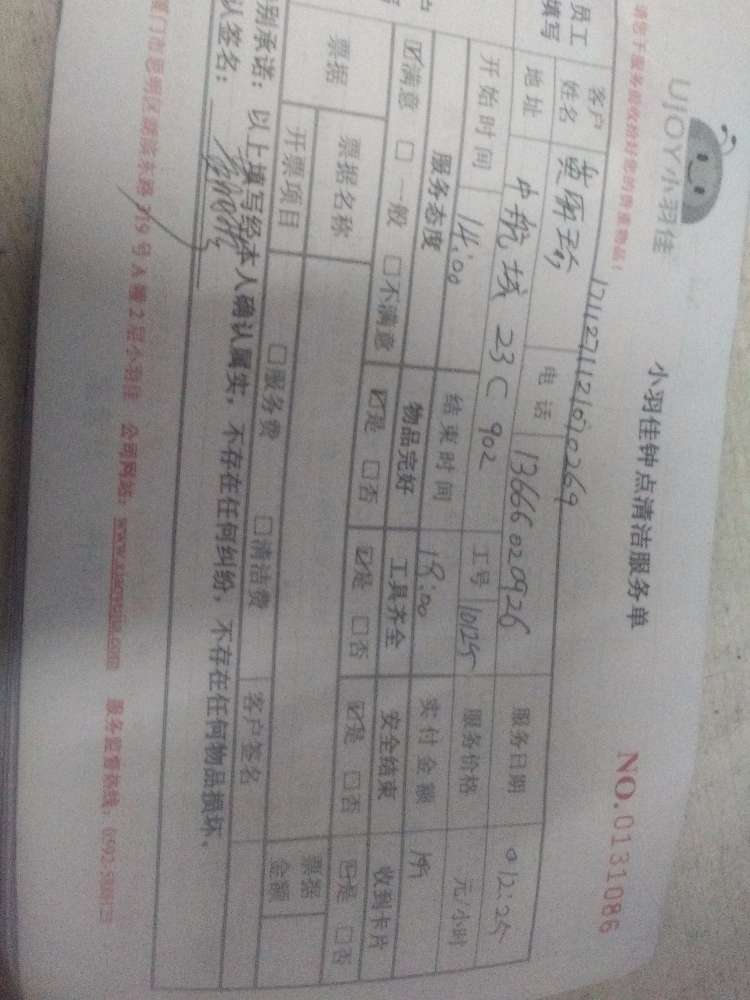 UJOY小羽佳
小羽佳钟点清洁服务单
NO.0131086
请您下服务前收拾好您的贵重物品!
员工填写
客户姓名
电话 13666020926
服务日期 012:25
地址 中航城23C 902
工号 10125
服务价格 元/小时
开始时间 14:00
结束时间 18:00
实付金额
服务态度 物品完好 工具齐全 安全结束 收到卡片
☑满意 □一般 □不满意 ☑是 □否 ☑是 □否 ☑是 □否 ☑是 □否
票据 票据名称 票据金额
开票项目 □服务费 □清洁费 客户签名
别承诺:以上填写经本人确认属实,不存在任何纠纷,不存在任何物品损坏。
认签名:
厦门市思明区 719号A幢2层小羽佳 公司网站: 服务监督热线: